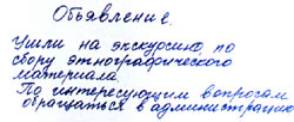 Объявление.
Ушли на экскурсию по
сбору этнографического
материала.
По интересующим вопросам
обращаться в администрацию